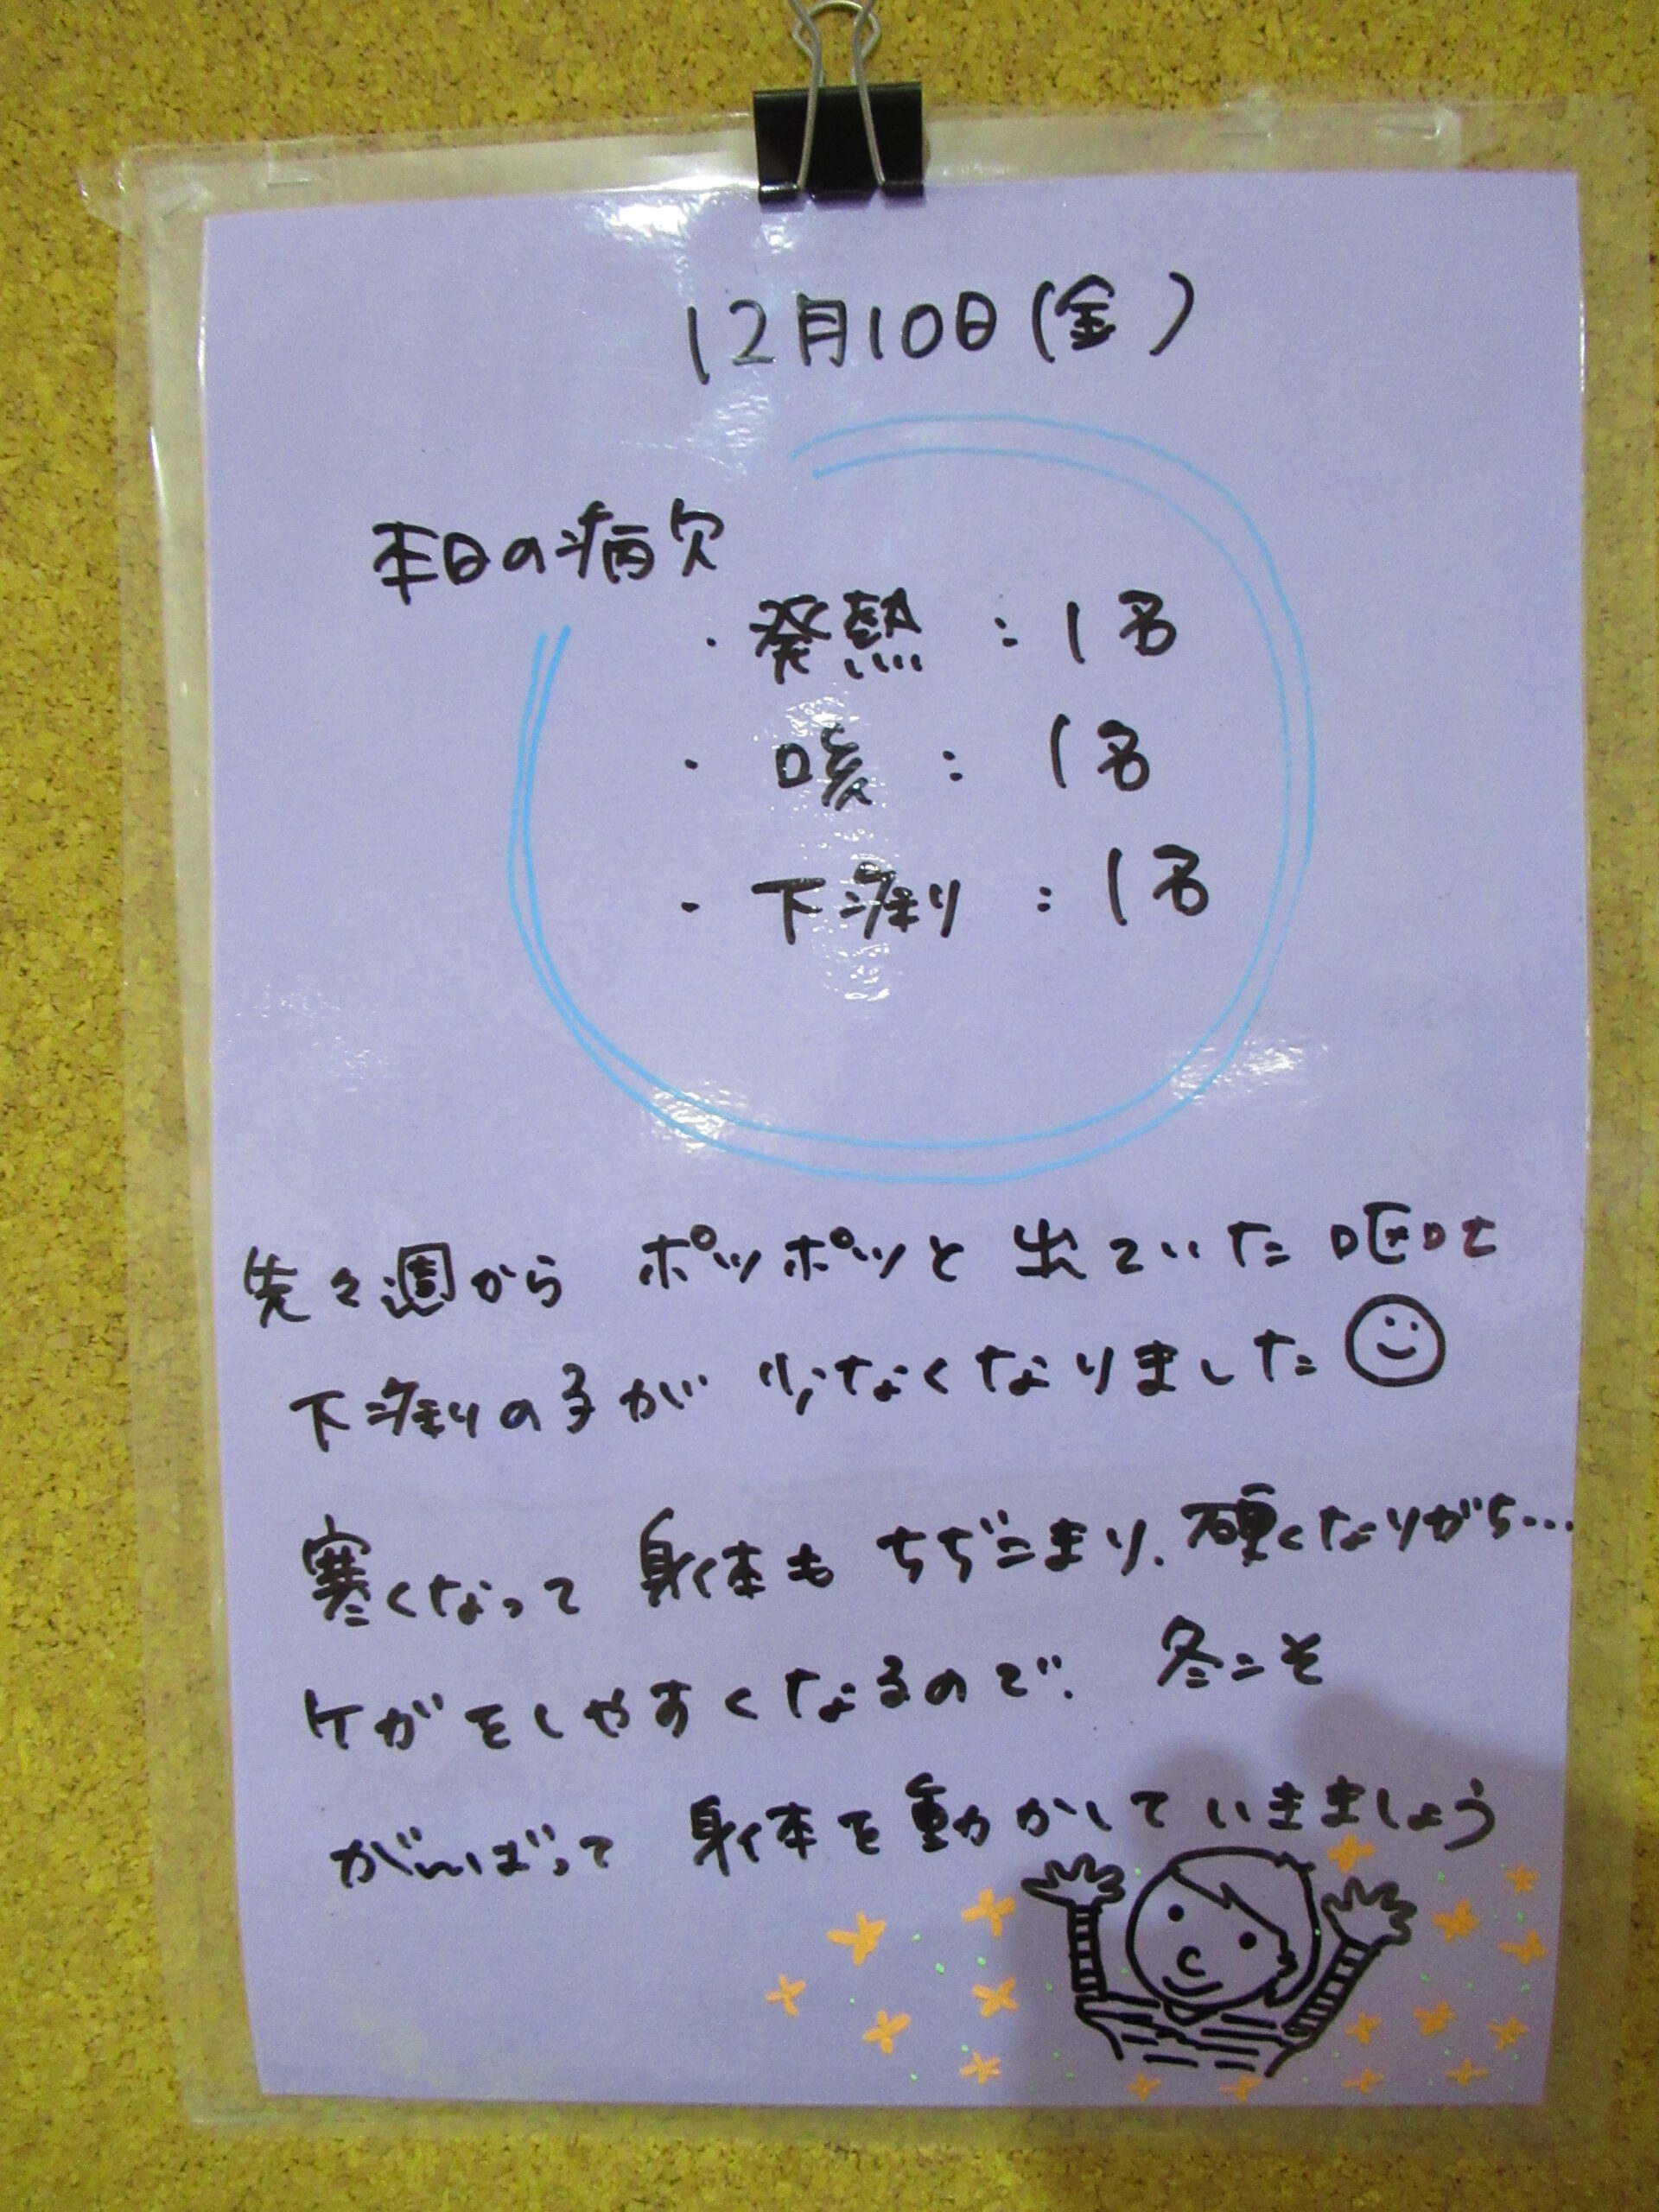 12月10日(金)
本日の病欠
・発熱：1名
・咳：1名
・下痢：1名
先々週からポツポツと出ていた嘔吐
下痢の子が少なくなりました
寒くなって身体もちぢこまり、硬くなりがち…
ケガをしやすくなるので、冬こそ
がんばって身体を動かしていきましょう